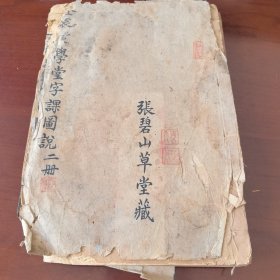 張碧山草堂藏
學堂字課圖說二冊